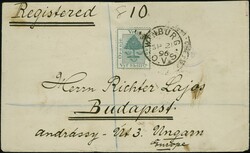 Registered
810
WINBURG
96
O.V.S.
Herrn Richter Lajos
Budapest.
andrássy-Ut 3. Ungarn
Europe